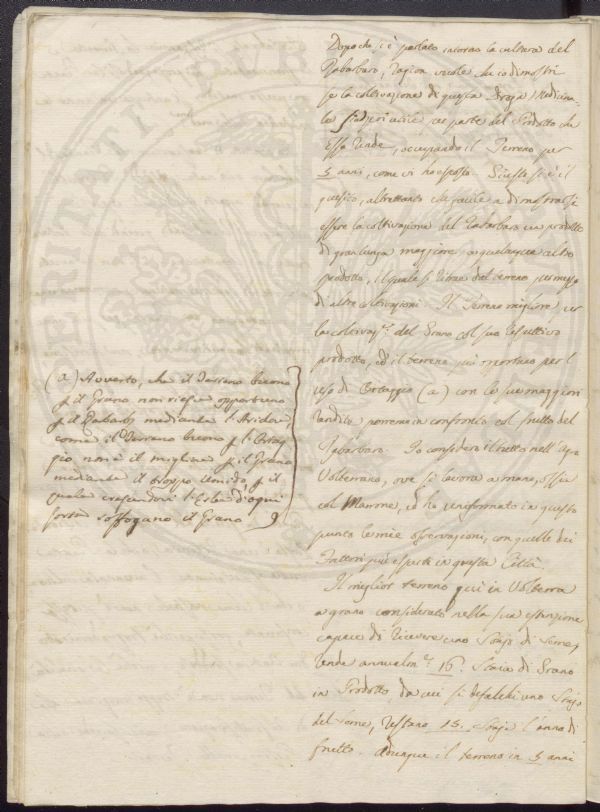 Dopo che si è parlato intorno la cultura del
Rabarbaro, ragion vuole che io dimostri
se la coltivazione di questa Droga Medicina-
le sia per parte del Prodotto che
Essa rende, occupando il Terreno per
5 anni, come vi ho esposto. Giusto si è il
quesito, altrettanto che facile a dimostrarsi
essere la coltivazione del Rabarbaro un prodotto
di gran lunga maggiore, a qualunque altro
prodotto, il quale si ritrae dal terreno per mezzo
di altre coltivazioni. Il Terreno migliore per
la coltivaz.e del Grano col suo respettivo
prodotto, ed il terreno più opportuno per l'
uso di Ortaggio (a) con le sue maggiori
rendite porremo in confronto col frutto del
Rabarbaro. Io considero il tutto nell'Agro
Volterrano, ove si lavora a mano, ossia
col Marrone, ed ho uniformato in questo
punto le mie osservazioni, con quelle dei
Fattori più esperti in questa Città.
Il miglior terreno qui in Volterra
a grano considerato nella sua estensione
capace di ricevere uno Stajo di Seme,
rende annualm.e 16. Staia di Grano
in Prodotto, da cui si defalchi uno Stajo
del seme, restano 15. Staja l'anno di
frutto. Adunque il terreno in 5 anni
(a) Averto, che il Terreno buono
p il Grano non riesce opportuno
p il Rabarb.o mediante l'Aridore
come il Terreno buono p l'Ortag
gio non è il migliore p il Grano
mediante il troppo Umido, p il
quale crescendovi l'Erbe d'ogni
sorte soffogano il Grano